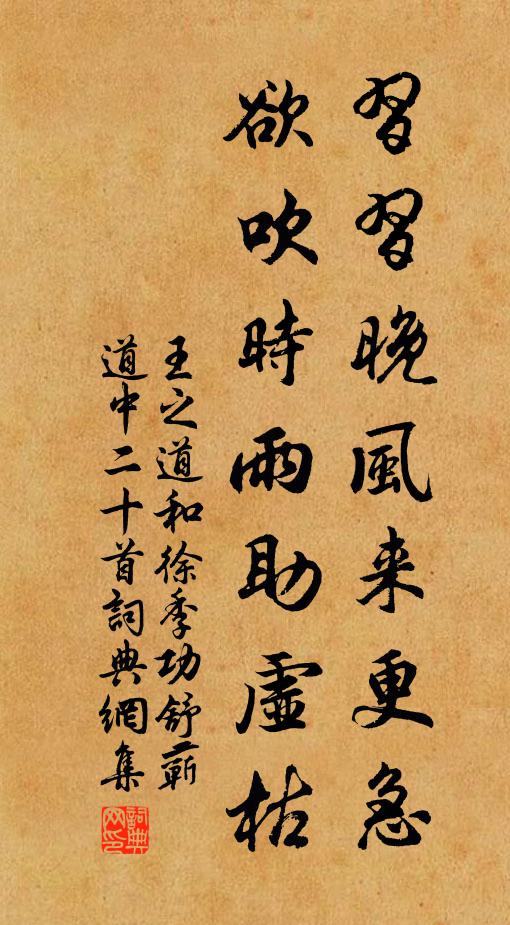 習習晚風来更急
欲吹時雨助虛枯
王之道和徐季功舒蘄
道中二十首詞典網集
詞典
网印